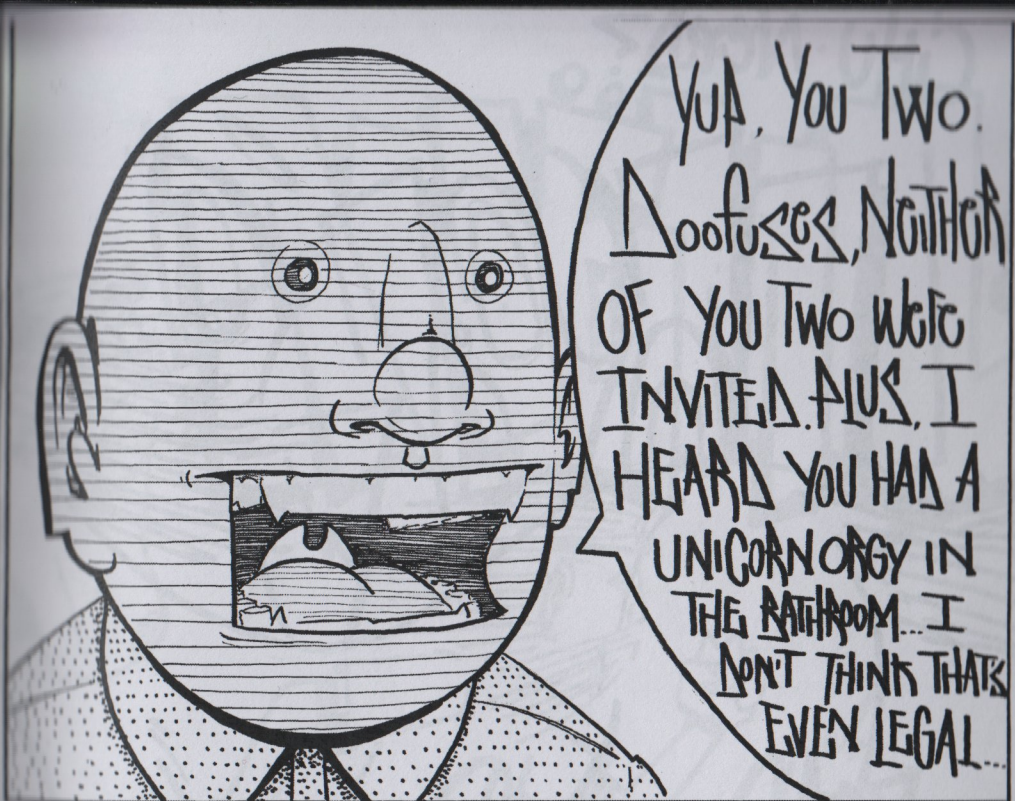 Yup, You Two.
Doofuses, Neither
of you Two were
Invited. Plus, I
Heard you had a
Unicorn orgy in
the Bathroom... I
Don't think thats
even legal...